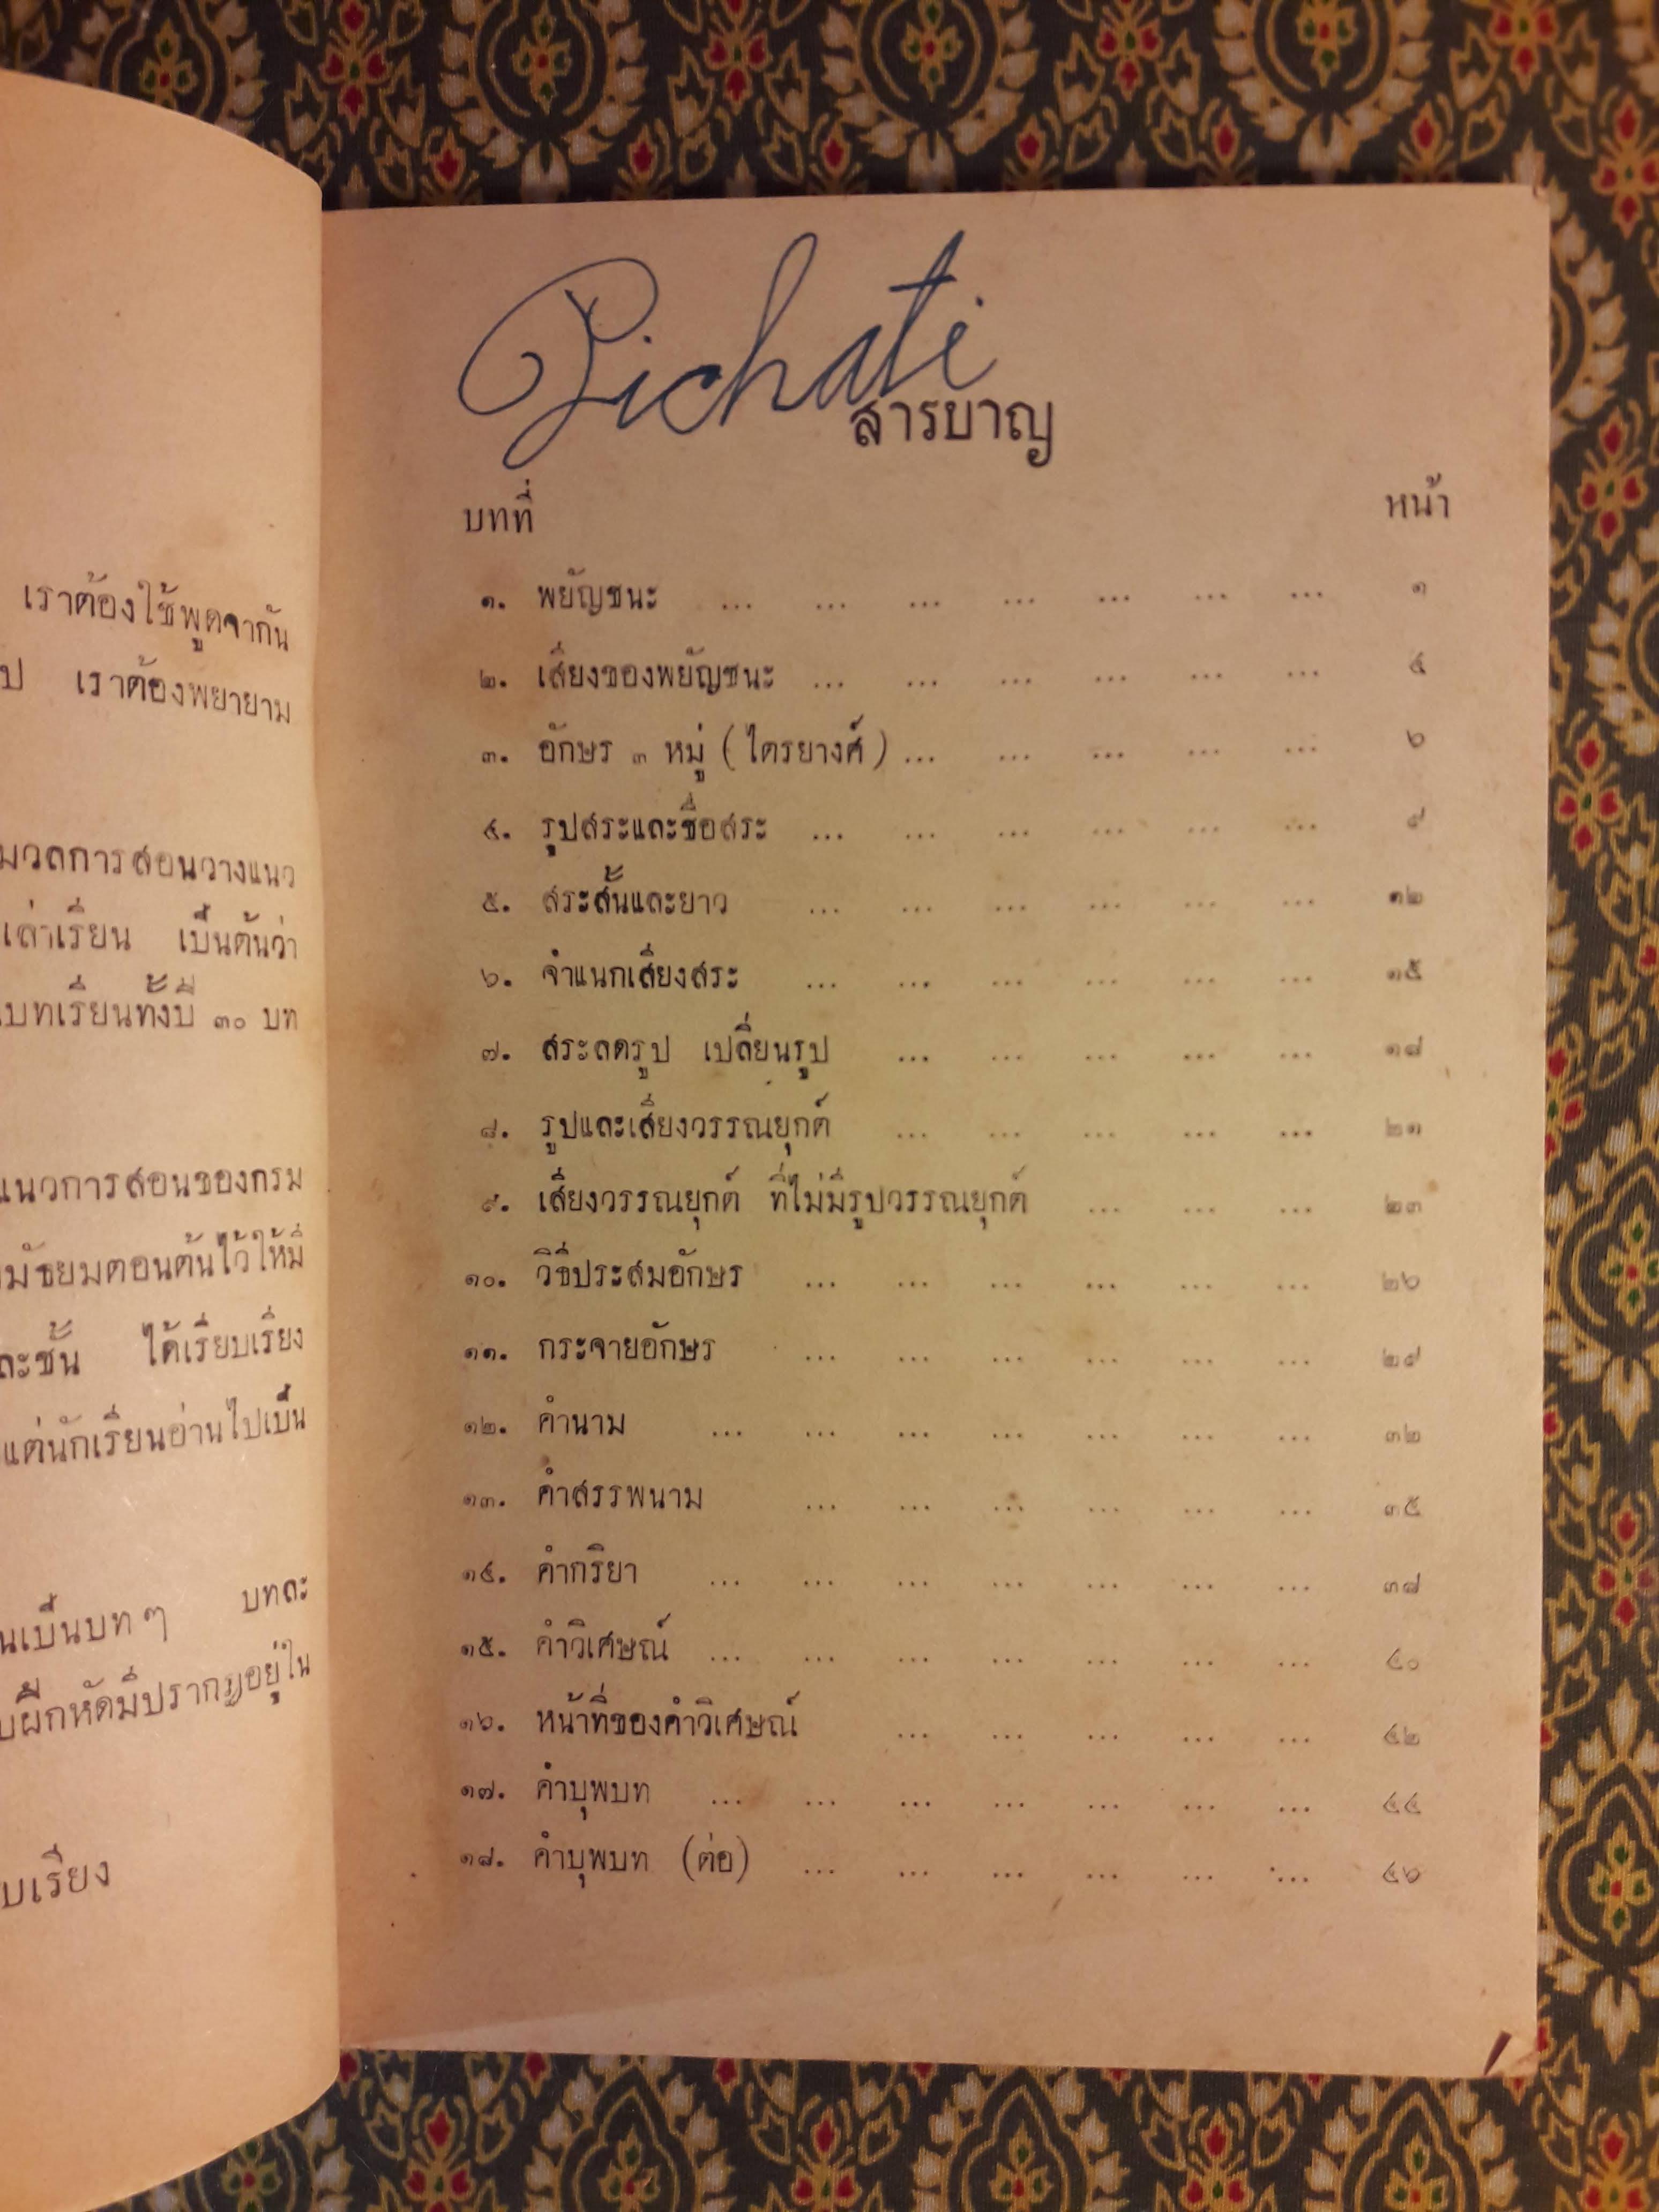 เราต้องใช้พูดจากัน
ป เราต้องพยายาม
มวลการสอนวางแนว
เล่าเรียน เป็นต้นว่า
บทเรียนทั้งปี ๓๐ บท
แนวการสอนของกรม
มัธยมตอนต้นไว้ให้มี
ละชั้น ได้เรียบเรียง
แต่นักเรียนอ่านไปเป็น
นเป็นบท ๆ บทละ
บฝึกหัดมีปรากฏอยู่ใน
บเรียง
Pichati
สารบาญ
บทที่ หน้า
๑. พยัญชนะ ... ... ... ... ... ... ... ๑
๒. เสียงของพยัญชนะ ... ... ... ... ... ... ๔
๓. อักษร ๓ หมู่ (ไตรยางศ์) ... ... ... ... ... ๖
๔. รูปสระและชื่อสระ ... ... ... ... ... ... ๙
๕. สระสั้นและยาว ... ... ... ... ... ... ๑๒
๖. จำแนกเสียงสระ ... ... ... ... ... ... ๑๕
๗. สระลดรูป เปลี่ยนรูป ... ... ... ... ... ๑๘
๘. รูปและเสียงวรรณยุกต์ ... ... ... ... ... ๒๑
๙. เสียงวรรณยุกต์ ที่ไม่มีรูปวรรณยุกต์ ... ... ... ๒๓
๑๐. วิธีประสมอักษร ... ... ... ... ... ... ๒๖
๑๑. กระจายอักษร ... ... ... ... ... ... ๒๙
๑๒. คำนาม ... ... ... ... ... ... ... ๓๒
๑๓. คำสรรพนาม ... ... ... ... ... ... ๓๕
๑๔. คำกริยา ... ... ... ... ... ... ... ๓๘
๑๕. คำวิเศษณ์ ... ... ... ... ... ... ... ๔๐
๑๖. หน้าที่ของคำวิเศษณ์ ... ... ... ... ... ๔๒
๑๗. คำบุพบท ... ... ... ... ... ... ... ๔๔
๑๘. คำบุพบท (ต่อ) ... ... ... ... ... ... ๔๖